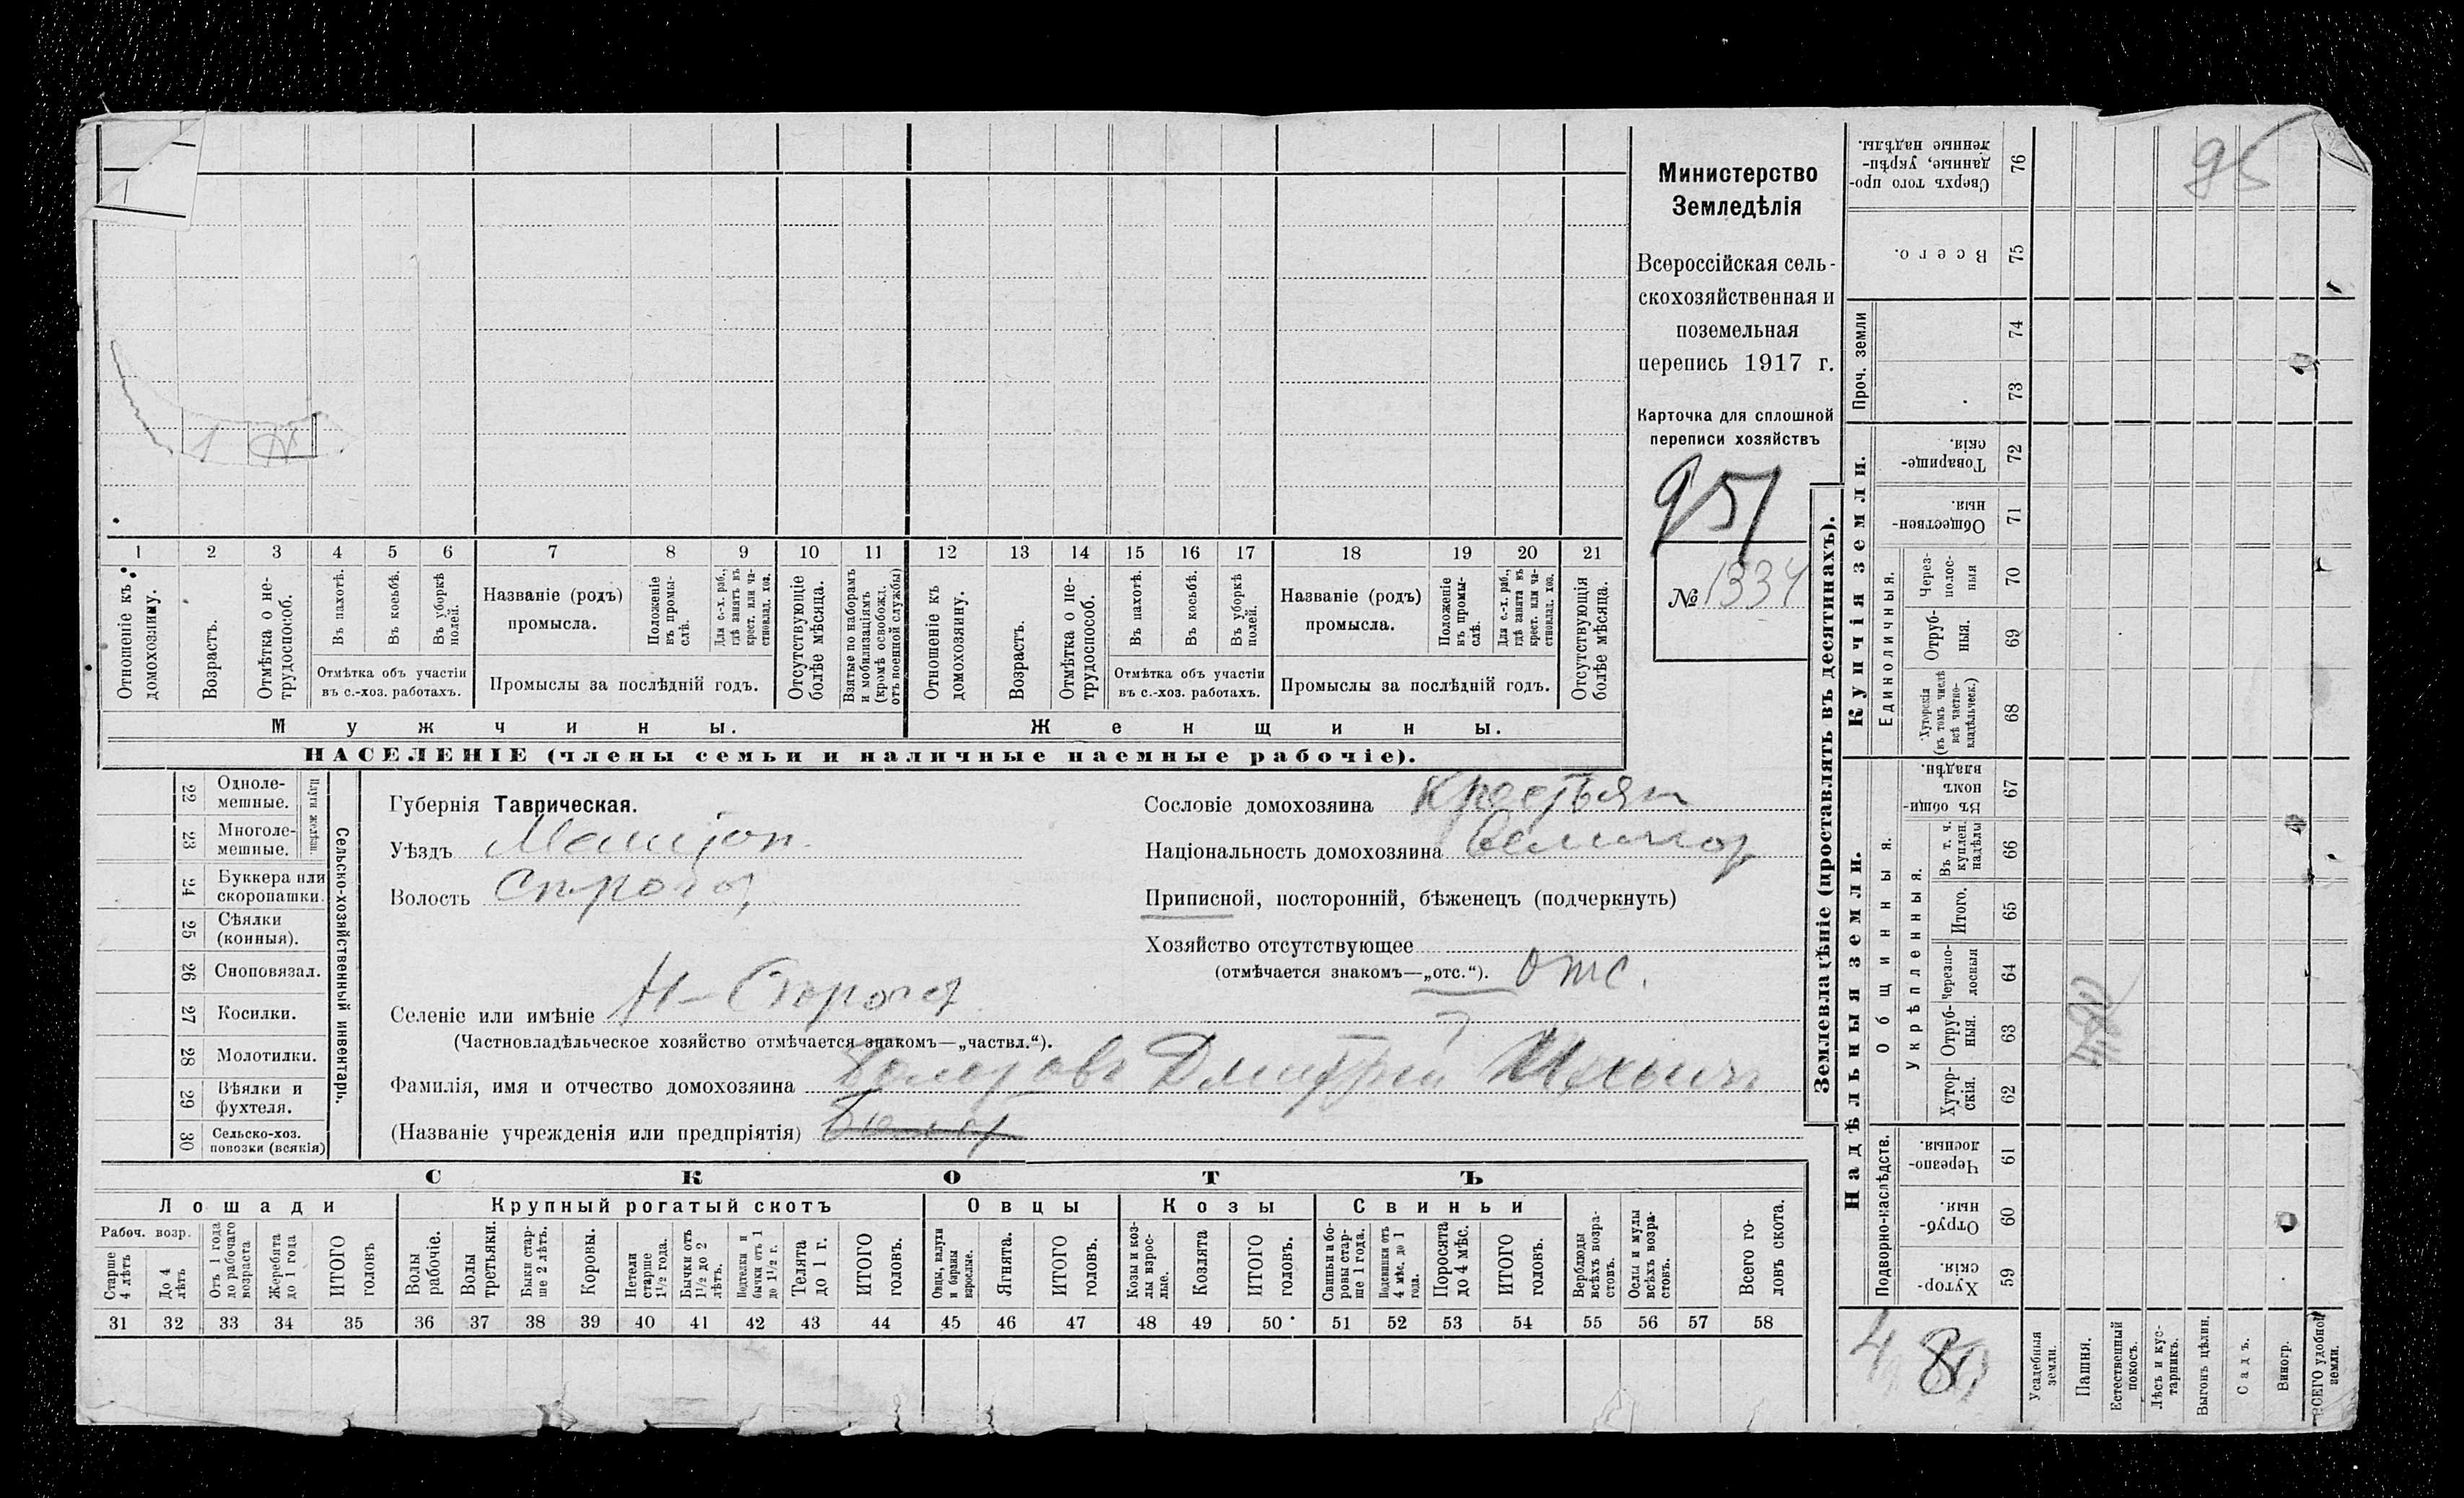 Министерство
Земледѣлія
Всероссійская сель-
скохозяйственная и
поземельная
перепись 1917 г.
Карточка для сплошной
переписи хозяйствъ
95
№ 1334
1 2 3 4 5 6 7 8 9 10 11 12 13 14 15 16 17 18 19 20 21
Отношеніе къ домохозяину.
Возрастъ.
Отмѣтка о не-трудоспособ.
Въ пахотѣ.
Въ косьбѣ.
Въ уборкѣ полей.
Отмѣтка объ участіи
въ с.-хоз. работахъ.
Названіе (родъ)
промысла.
Положеніе въ промы-слѣ.
Для с.-х. раб., гдѣ занятъ въ крест. или ча-стновлад. хоз.
Промыслы за послѣдній годъ.
Отсутствующіе болѣе мѣсяца.
Взятые по наборамъ и мобилизаціямъ (кромѣ освобожд. отъ военной службы)
Отношеніе къ домохозяину.
Возрастъ.
Отмѣтка о не-трудоспособ.
Въ пахотѣ.
Въ косьбѣ.
Въ уборкѣ полей.
Отмѣтка объ участіи
въ с.-хоз. работахъ.
Названіе (родъ)
промысла.
Положеніе въ промы-слѣ.
Для с.-х. раб., гдѣ занята въ крест. или ча-стновлад. хоз.
Промыслы за послѣдній годъ.
Отсутствующія болѣе мѣсяца.
Мужчины.
Женщины.
НАСЕЛЕНІЕ (члены семьи и наличные наемные рабочіе).
22 Одноле-мешные.
23 Многоле-мешные.
Плуги желѣзн.
24 Буккера или скоропашки.
25 Сѣялки (конныя).
26 Сноповязал.
27 Косилки.
28 Молотилки.
29 Вѣялки и фухтеля.
30 Сельско-хоз. повозки (всякія)
Сельско-хозяйственный инвентарь.
Губернія Таврическая.
Уѣздъ
Волость
Селеніе или имѣніе
(Частновладѣльческое хозяйство отмѣчается знакомъ—„частвл.“).
Фамилія, имя и отчество домохозяина Дмитрий
(Названіе учрежденія или предпріятія)
Сословіе домохозяина Крестьян
Національность домохозяина Великор
Приписной, посторонній, бѣженецъ (подчеркнуть)
Хозяйство отсутствующее
(отмѣчается знакомъ—„отс.“). отс.
СКОТЪ
Лошади
Крупный рогатый скотъ
Овцы
Козы
Свиньи
Рабоч. возр.
Старше 4 лѣтъ
До 4 лѣтъ
Отъ 1 года до рабочаго возраста
Жеребята до 1 года
ИТОГО головъ
Волы рабочіе.
Волы третьяки.
Быки стар-ше 2 лѣтъ.
Коровы.
Нетели старше 1½ года.
Бычки отъ 1½ до 2 лѣтъ.
Подтелки и бычки отъ 1 до 1½ г.
Телята до 1 г.
ИТОГО головъ.
Овцы, валухи и бараны взрослые.
Ягнята.
ИТОГО головъ.
Козы и коз-лы взрос-лые.
Козлята
ИТОГО головъ.
Свиньи и бо-ровы стар-ше 1 года.
Подсвинки отъ 4 мѣс. до 1 года.
Поросята до 4 мѣс.
ИТОГО головъ.
Верблюды всѣхъ возра-стовъ.
Ослы и мулы всѣхъ возра-стовъ.
Всего го-ловъ скота.
31 32 33 34 35 36 37 38 39 40 41 42 43 44 45 46 47 48 49 50 51 52 53 54 55 56 57 58
Землевладѣніе (проставлять въ десятинахъ).
Купчія земли.
Надѣльныя земли.
76 Сверхъ того про-данные, укрѣп-ленные надѣлы.
75 Всего.
Проч. земли
74
73
72 Товарище-скія.
71 Обществен-ныя.
Единоличныя.
70 Через-полос-ныя
69 Отруб-ныя.
68 Хуторскія (въ томъ числѣ всѣ частно-владѣльческ.)
Общинныя.
67 Въ общин-номъ владѣн.
Укрѣпленныя.
66 Въ т. ч. куплен. надѣлы
65 Итого.
64 Черезпо-лосныя
63 Отруб-ныя.
62 Хутор-скія.
Подворно-наслѣдств.
61 Черезпо-лосныя.
60 Отруб-ныя.
59 Хутор-скія.
Усадебныя земли.
Пашня.
Естественный покосъ.
Лѣсъ и кус-тарникъ.
Выгонъ цѣлин.
Садъ.
Виногр.
ВСЕГО удобной земли.
95